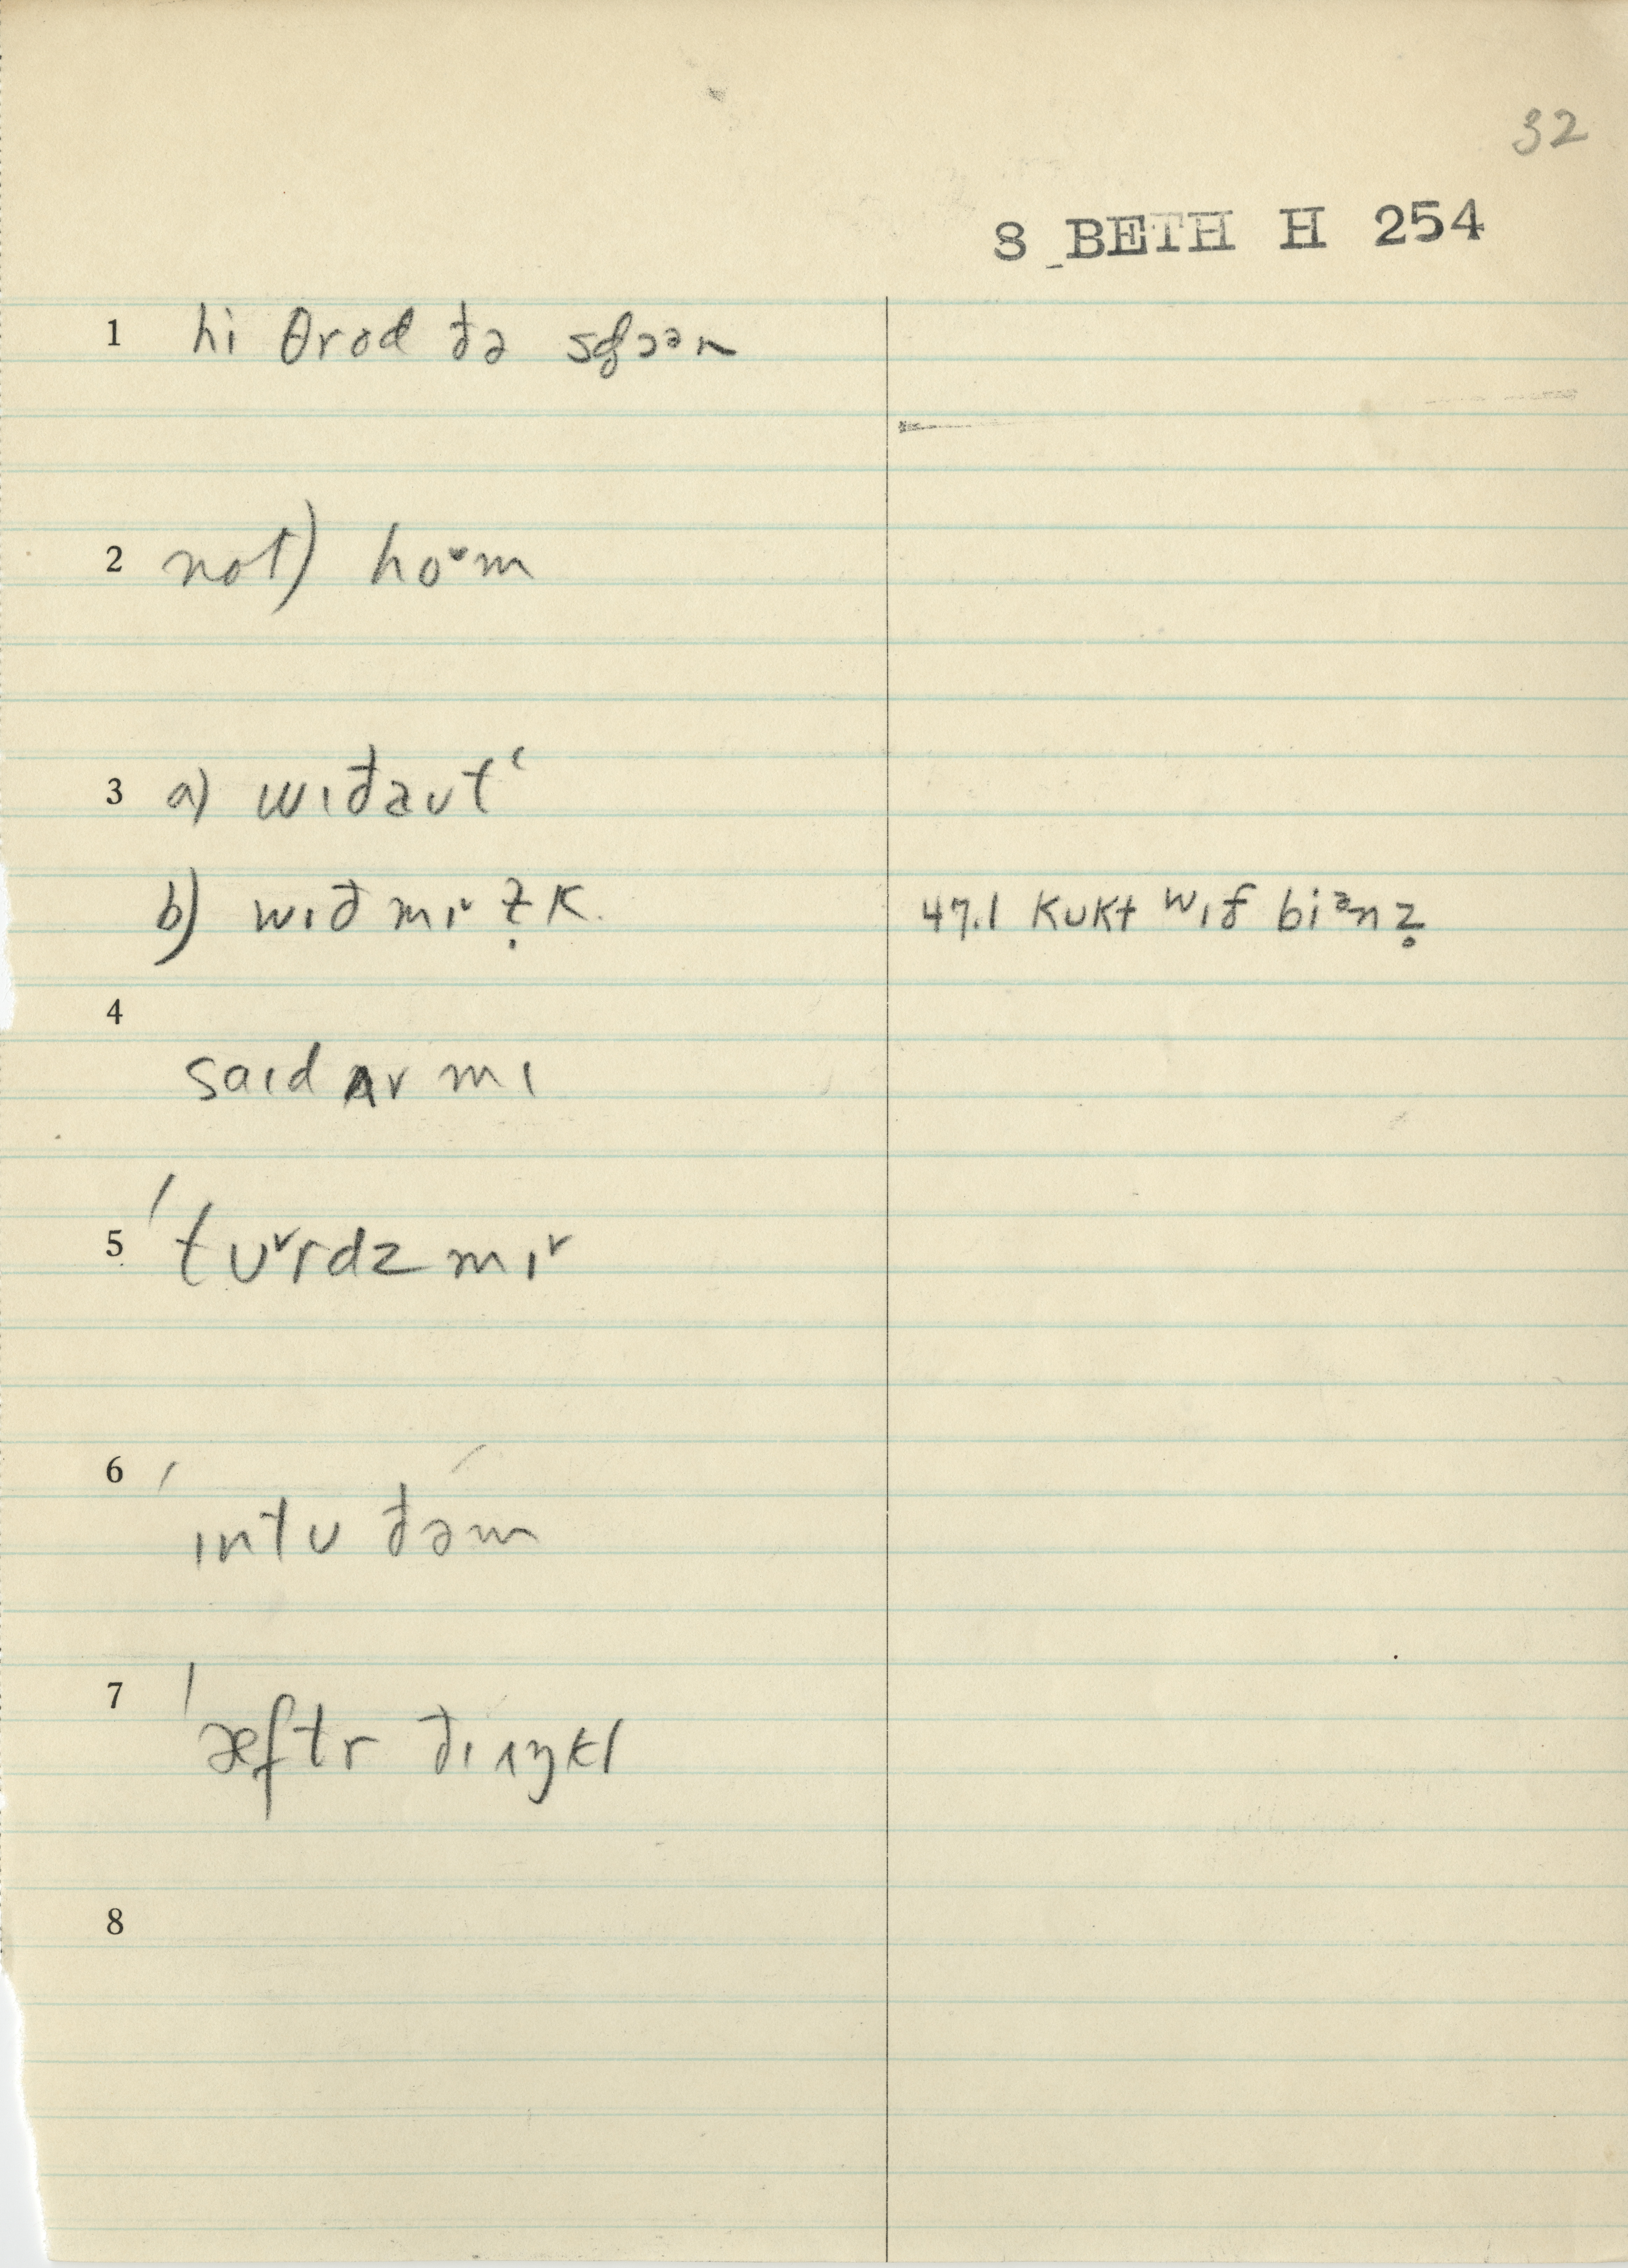 32
8 BETH H 254
1 hi θrod ðə
2 not) hoᵛm
3 a) wɪðaut‘
b) wɪð mɪᵛ ẓ̵ K. 47.1 kukt wɪθ̬ biᵊnz̥
4
saɪd ʌv mɪ
5 ′tuᵛrdz mɪᵛ
6 ′ɪntu ðə́m
7 ′æftr ðɪ ʌŋkl
8